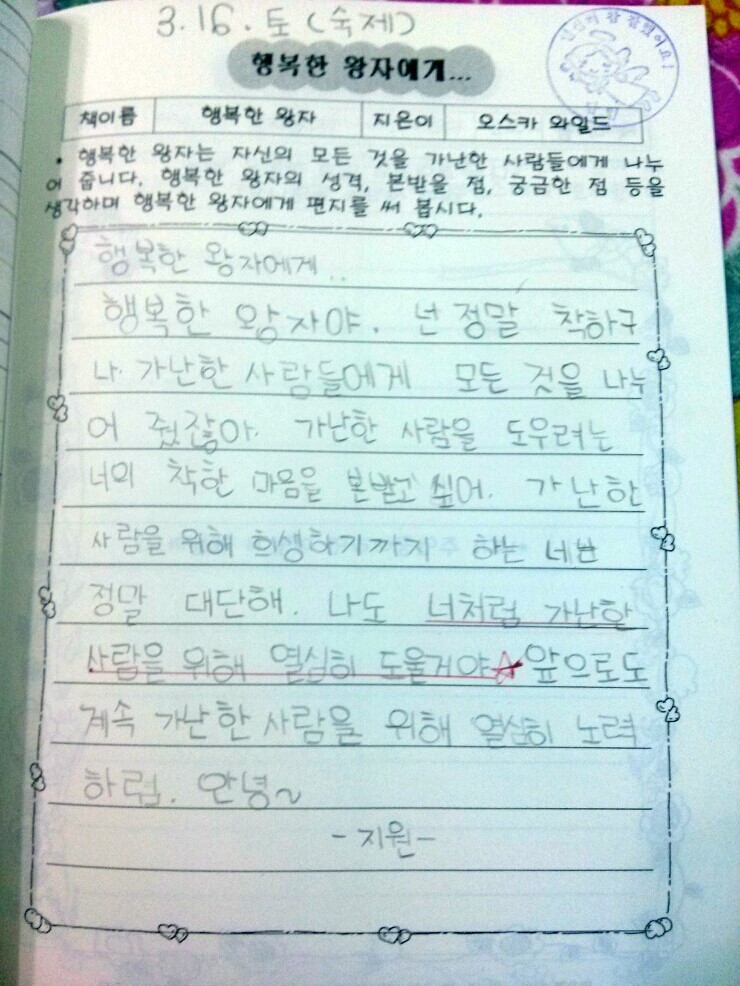 3.16.토(숙제)
행복한 왕자에게...
참 잘했어요!
책이름 행복한 왕자 지은이 오스카 와일드
• 행복한 왕자는 자신의 모든 것을 가난한 사람들에게 나누
어 줍니다. 행복한 왕자의 성격, 본받을 점, 궁금한 점 등을
생각하며 행복한 왕자에게 편지를 써 봅시다.
행복한 왕자에게..
행복한 왕자야. 넌 정말 착하구
나. 가난한 사람들에게 모든 것을 나누
어 줬잖아. 가난한 사람을 도우려는
너의 착한 마음을 본받고 싶어. 가난한
사람을 위해 희생하기까지 하는 네
정말 대단해. 나도 너처럼 가난한
사람을 위해 열심히 도울거야☆ 앞으로도
계속 가난한 사람을 위해 열심히 노력
하렴. 안녕~
-지원-